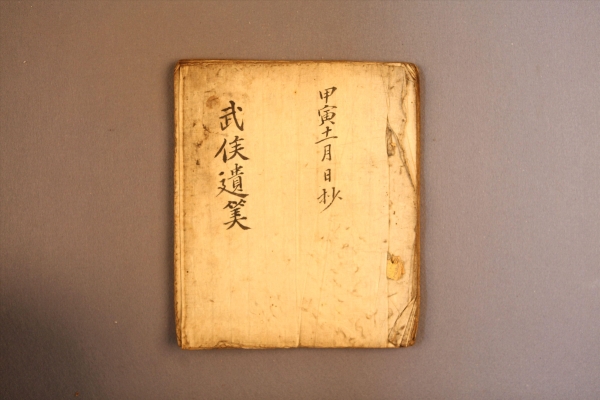 甲寅十一月日抄
武侯遺筭